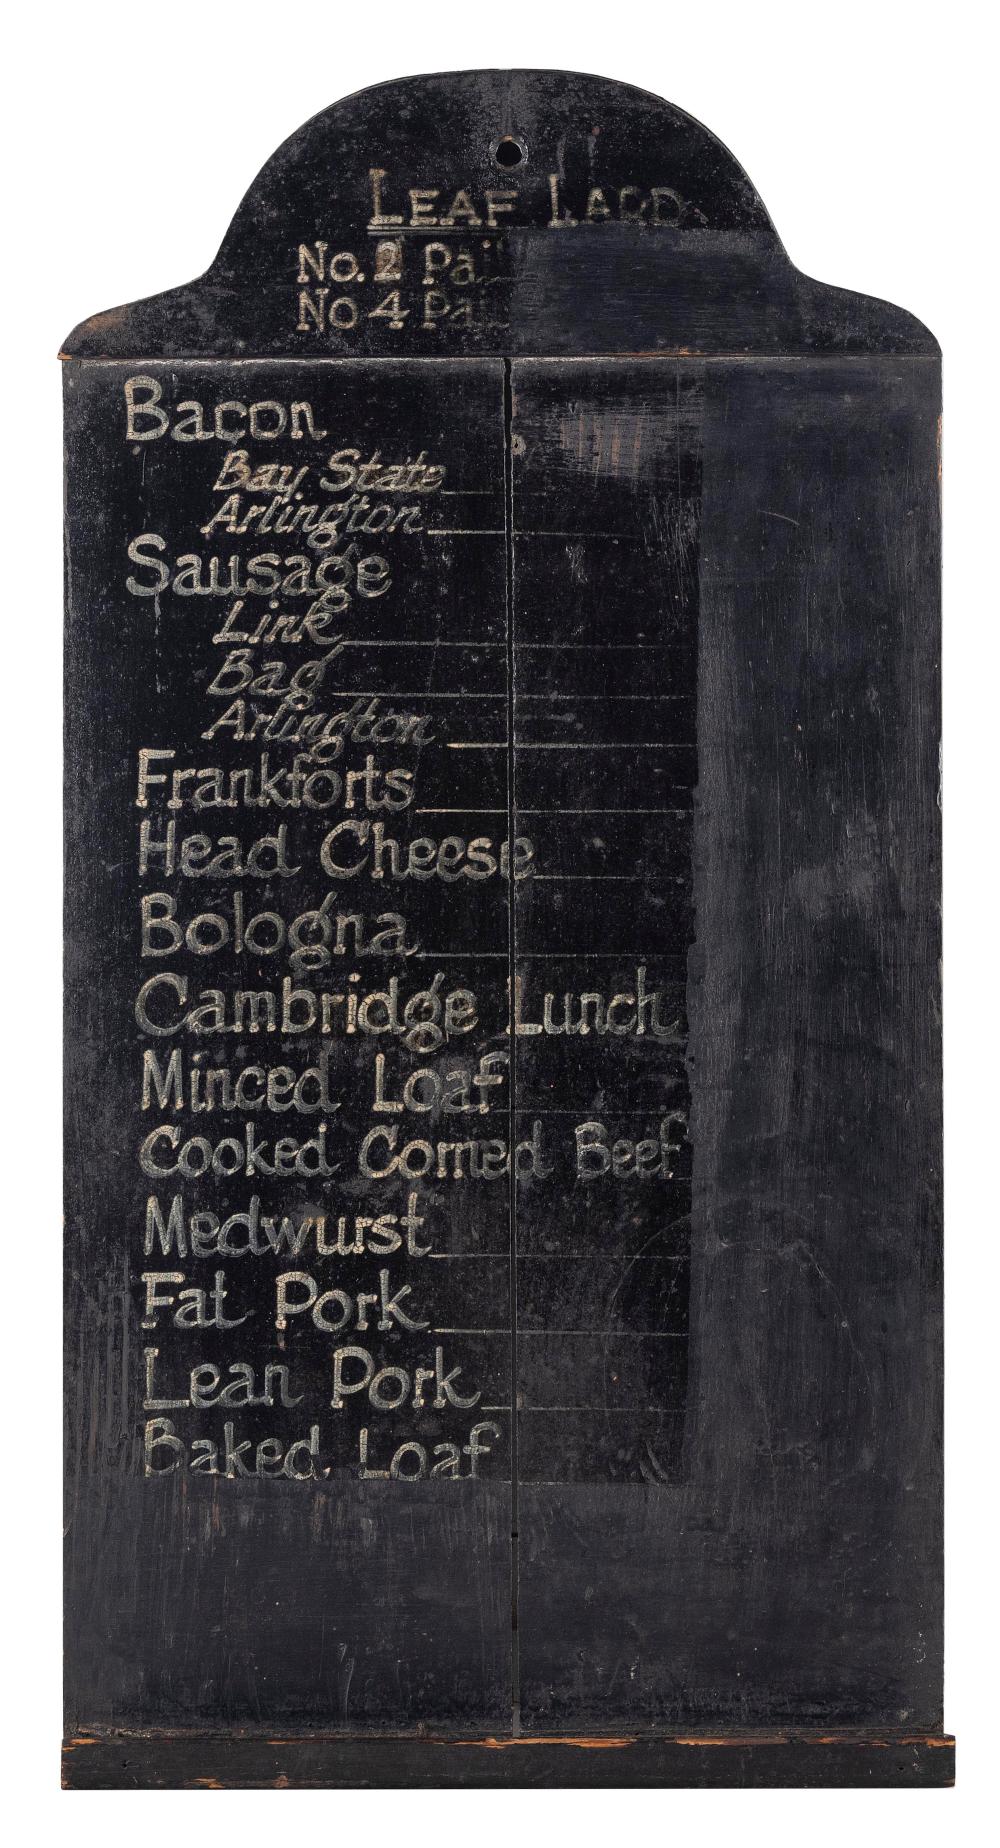 LEAF LARD
No. 2 Pail
No 4 Pail
Bacon
Bay State
Arlington
Sausage
Link
Bag
Arlington
Frankforts
Head Cheese
Bologna
Cambridge Lunch
Minced Loaf
Cooked Corned Beef
Medwurst
Fat Pork
Lean Pork
Baked Loaf